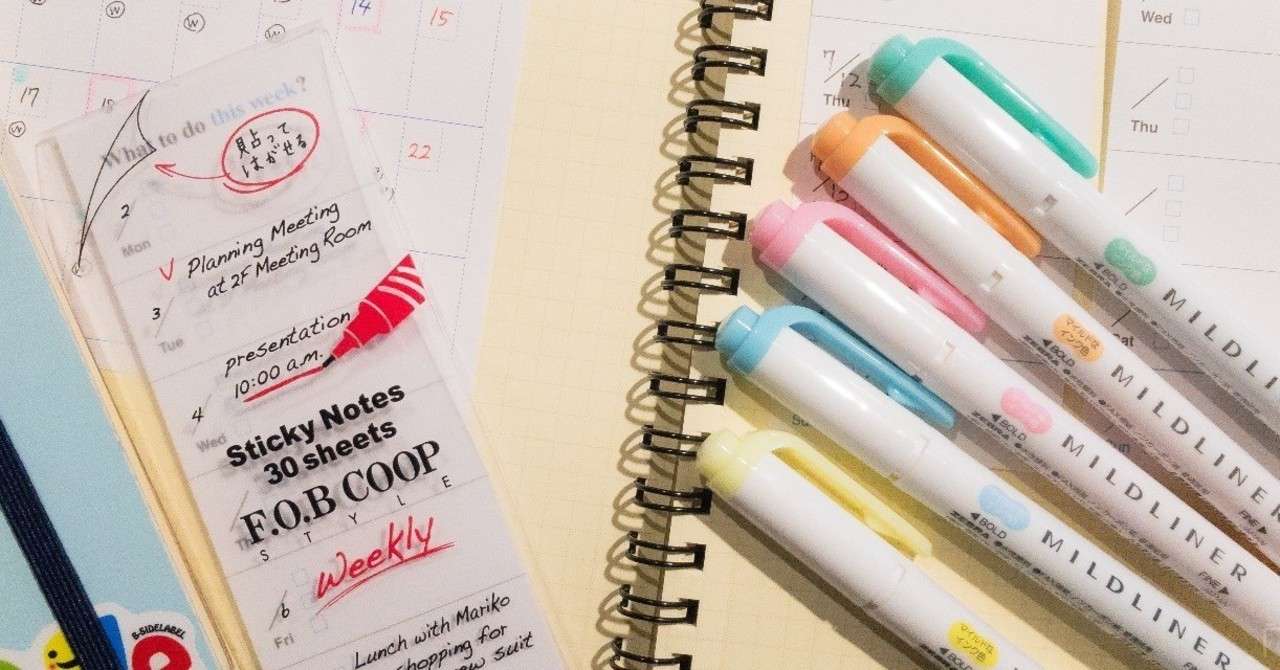 14
15
17
18
22
What to do this week?
見 占って
はがせる
2
Mon
✓ Planning Meeting
at 2F Meeting Room
3
Tue
presentation
10:00 a.m.
4
Wed
Sticky Notes
30 sheets
F.O.B COOP
STYLE
Weekly
6
Fri
Lunch with Mariko
shopping for
new suit
B-SIDELABEL
Wed
7/12
Thu
Thu
BOLD
MILDLI
マイルドな
インク色
BOLD
MILDLINER
FINE
BOLD
ZEBRA
MILDLINER
FINE
BOLD
ZEBRA
MILDLINER
マイルドな
インク色